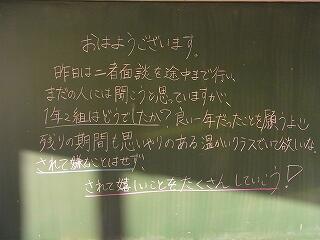 おはようございます。
昨日は二者面談を途中まで行い、
まだの人には聞こうと思っていますが、
1年2組はどうでしたか？良い一年だったことを願うよ
残りの期間も思いやりのある温かいクラスでいて欲しいな
されて嫌なことはせず、
されて嬉しいことをたくさんしていこう！